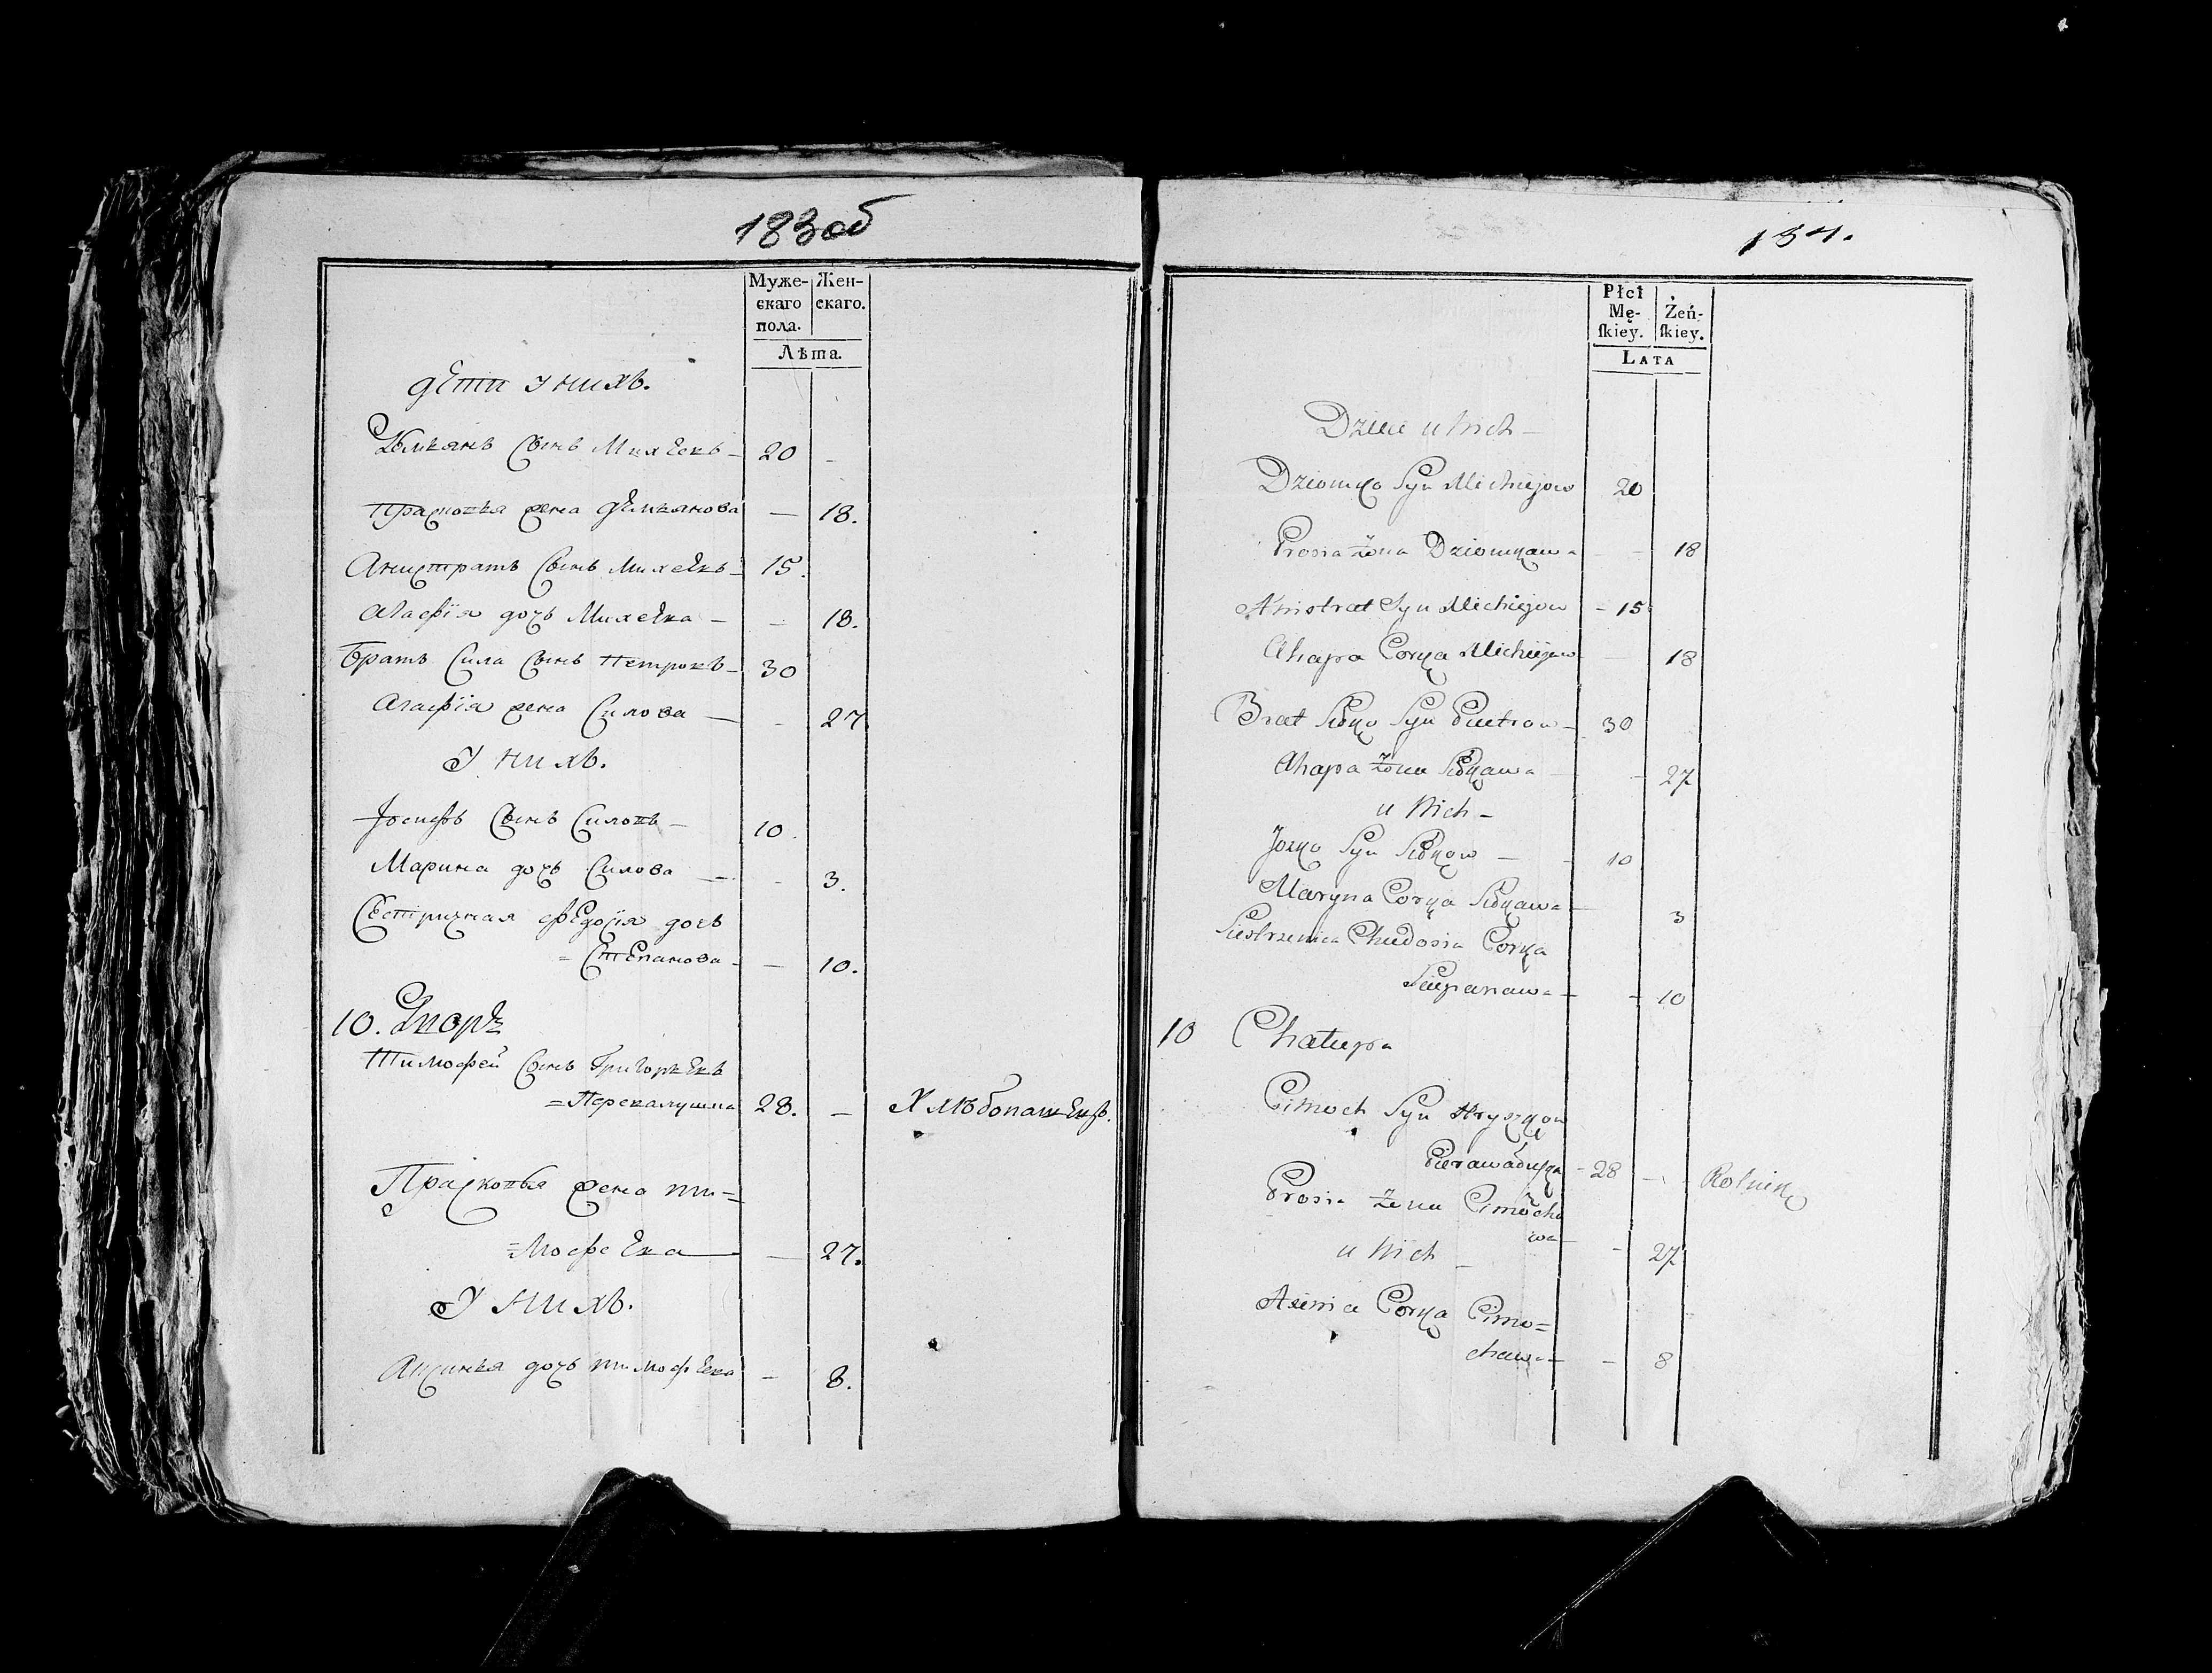 183 об
Муже-
скаго
пола.
Жен-
скаго.
Лѣта.
дети у нихъ.
Демьянъ Сынъ Михеевъ - 20 -
Прасковья жена демьянова — 18.
Анистратъ Сынъ Михеевъ - 15.
Агафія дочь Михеева - - 18.
Братъ Сила Сынъ Петровъ - 30
Агафія жена Силова — - 27
У нихъ.
Іосифъ Сынъ Силовъ - 10.
Марина дочь Силова — - 3.
Сестричная федосія дочь
= Степанова - — 10.
10. Дворъ
Тимофей Сынъ Григорьевъ
= 28. — Хлѣбопашецъ.
Прасковья жена ти=
=мофеева — — 27.
У нихъ.
Аксинья дочь тимофеева - 8.
184.
Płci
Mę-
skiey.
Żeń-
skiey.
LATA
Dzieci u Nich -
Dziomko Syn Michiejow 20
Prosia żona Dziomkowa - - 18
Anistrat Syn Michiejow - 15
Ahapa Corka Michiejowa — 18
Brat Siłko Syn Pietrow - 30
Ahapa żona Siłkowa - 27
u Nich -
Jozko Syn Siłkow — - 10
Maryna Corka Siłkowa - 3
Siestrzenica Chwedosia Corka
Sciepanowa - - 10
10 Chałupa
Cimoch Syn Hryszkow
- 28 - Rolnik
Prosia żona Cimocho
wa - - 27
u Nich -
Axinia Corka Cimo=
chowa - - 8